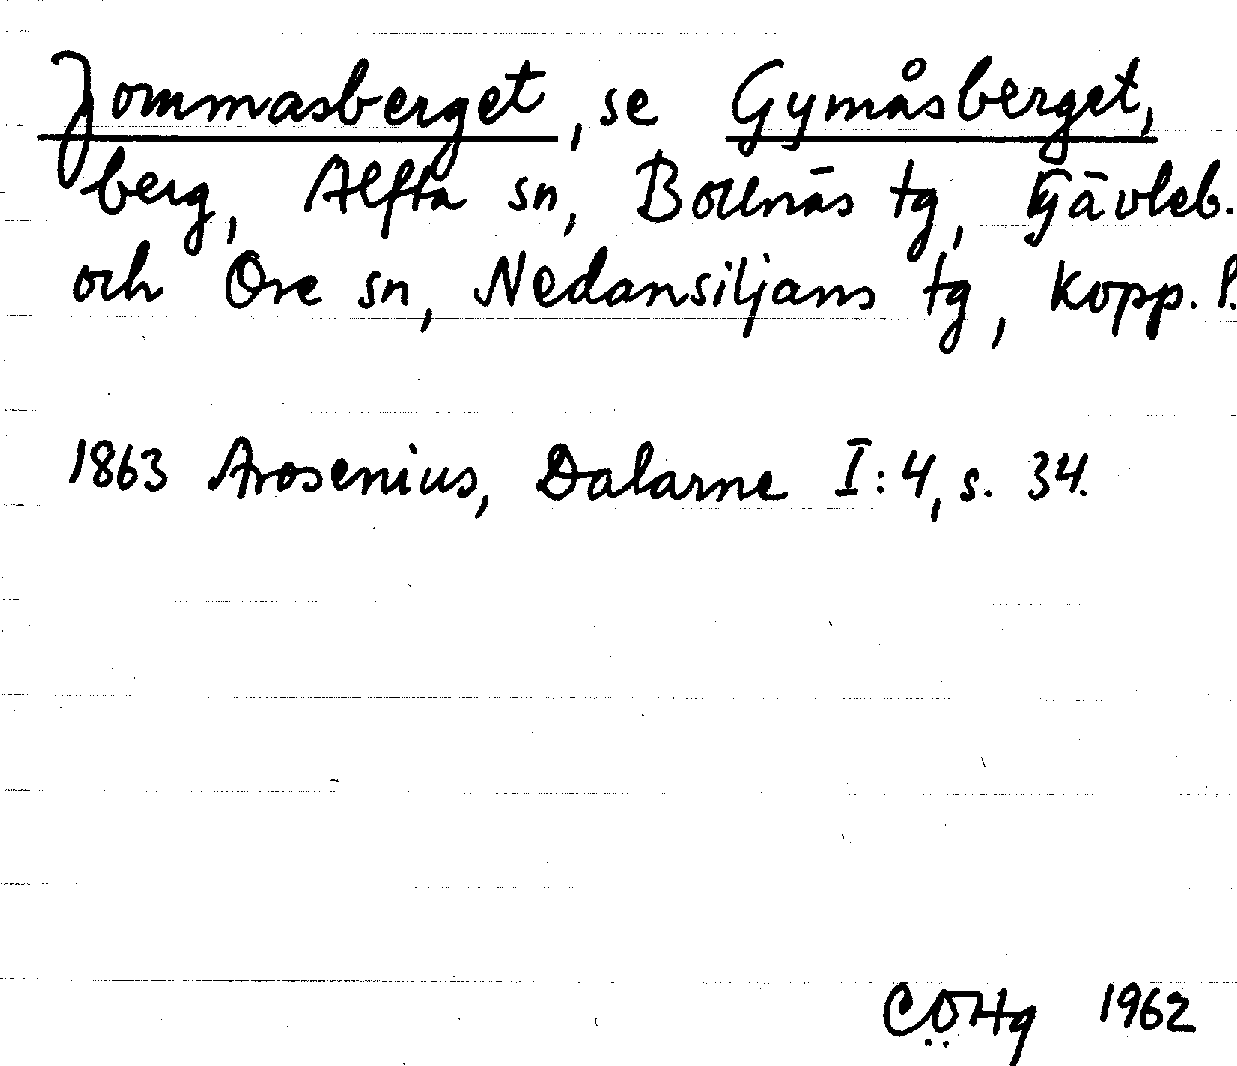 Jommasberget, se Gymåsberget,
berg, Alfta sn, Bollnäs tg, Gävleb.
och Ore sn, Nedansiljans tg, Kopp. l.
1863 Arosenius, Dalarne I:4, s. 34.
CÖHg 1962